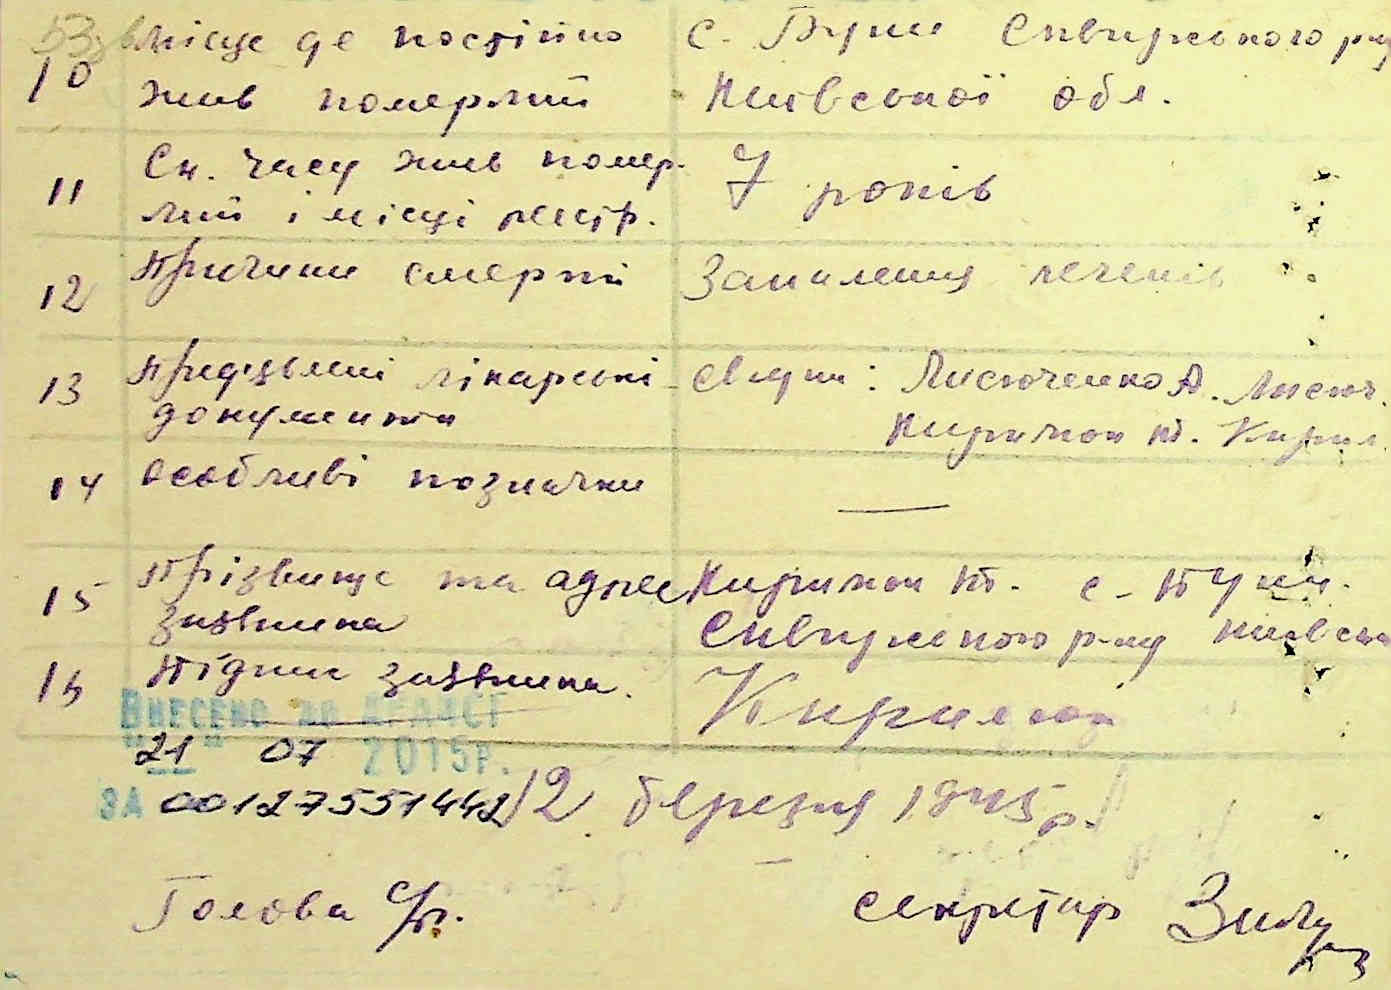 53
10 місце де постійно с. Буки Сквирського р-ну
жив померлий Київської обл.
11 Ск. часу жив помер- 7 років
лий і місці реєстр.
12 Причини смерті Запалення печенів
13 Пред'явлені лікарські Свідки: Лисюченко А. Лисюч.
документи Киримон Т. Кирил
14 Особливі позначки —
15 Прізвище та адрес Киримон Т. с. Буки
заявника Сквирського р-ну Київськ
16 Підпис заявника.
ВНЕСЕНО ДО ДРАЦСГ
"21" 07 2015р.
ЗА 00127551442 12 березня 1945р.
Голова С/р. секретар